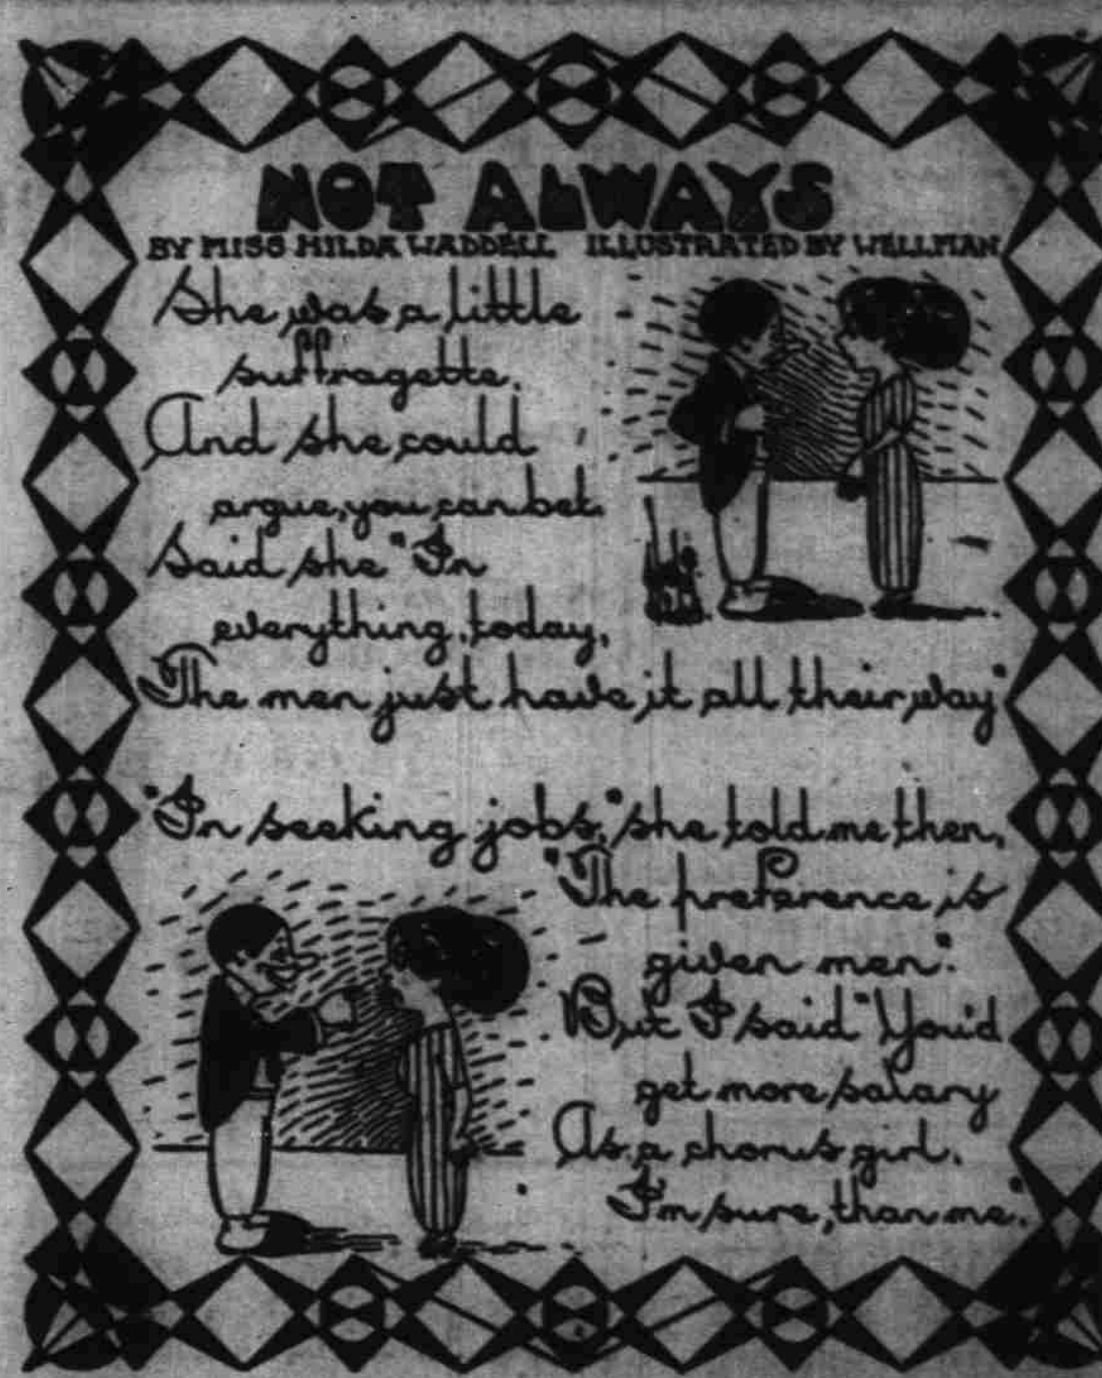 NOT ALWAYS
BY MISS HILDA WADDELL ILLUSTRATED BY WELLMAN
She was a little
suffragette.
And she could
argue, you can bet.
Said she "In
everything, today,
The men just have it all their way"
"In seeking jobs," she told me then,
"The preference is
given men".
But I said "You'd
get more salary
As a chorus girl.
I'm sure, than me."